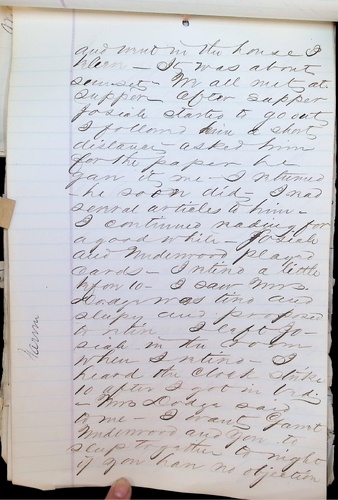 and went in the house I
— It was about
sunset — We all met at
supper — After supper
Josiah started to go out
I followed him a short
distance — asked him
for the paper he
gave it me — I returned
— he soon did — I read
several articles to him —
I continued reading for
a good while — Josiah
and Underwood played
cards — I retired a little
before 10 — I saw Mrs.
Dodge was tired and
sleepy and proposed
to retire I left Jo-
siah in the room
when I retired — I
heard the clock strike
10 after I got in bed
— Mrs Dodge said
to me — I want Grant
Underwood and you to
sleep together to night
if you have no objection